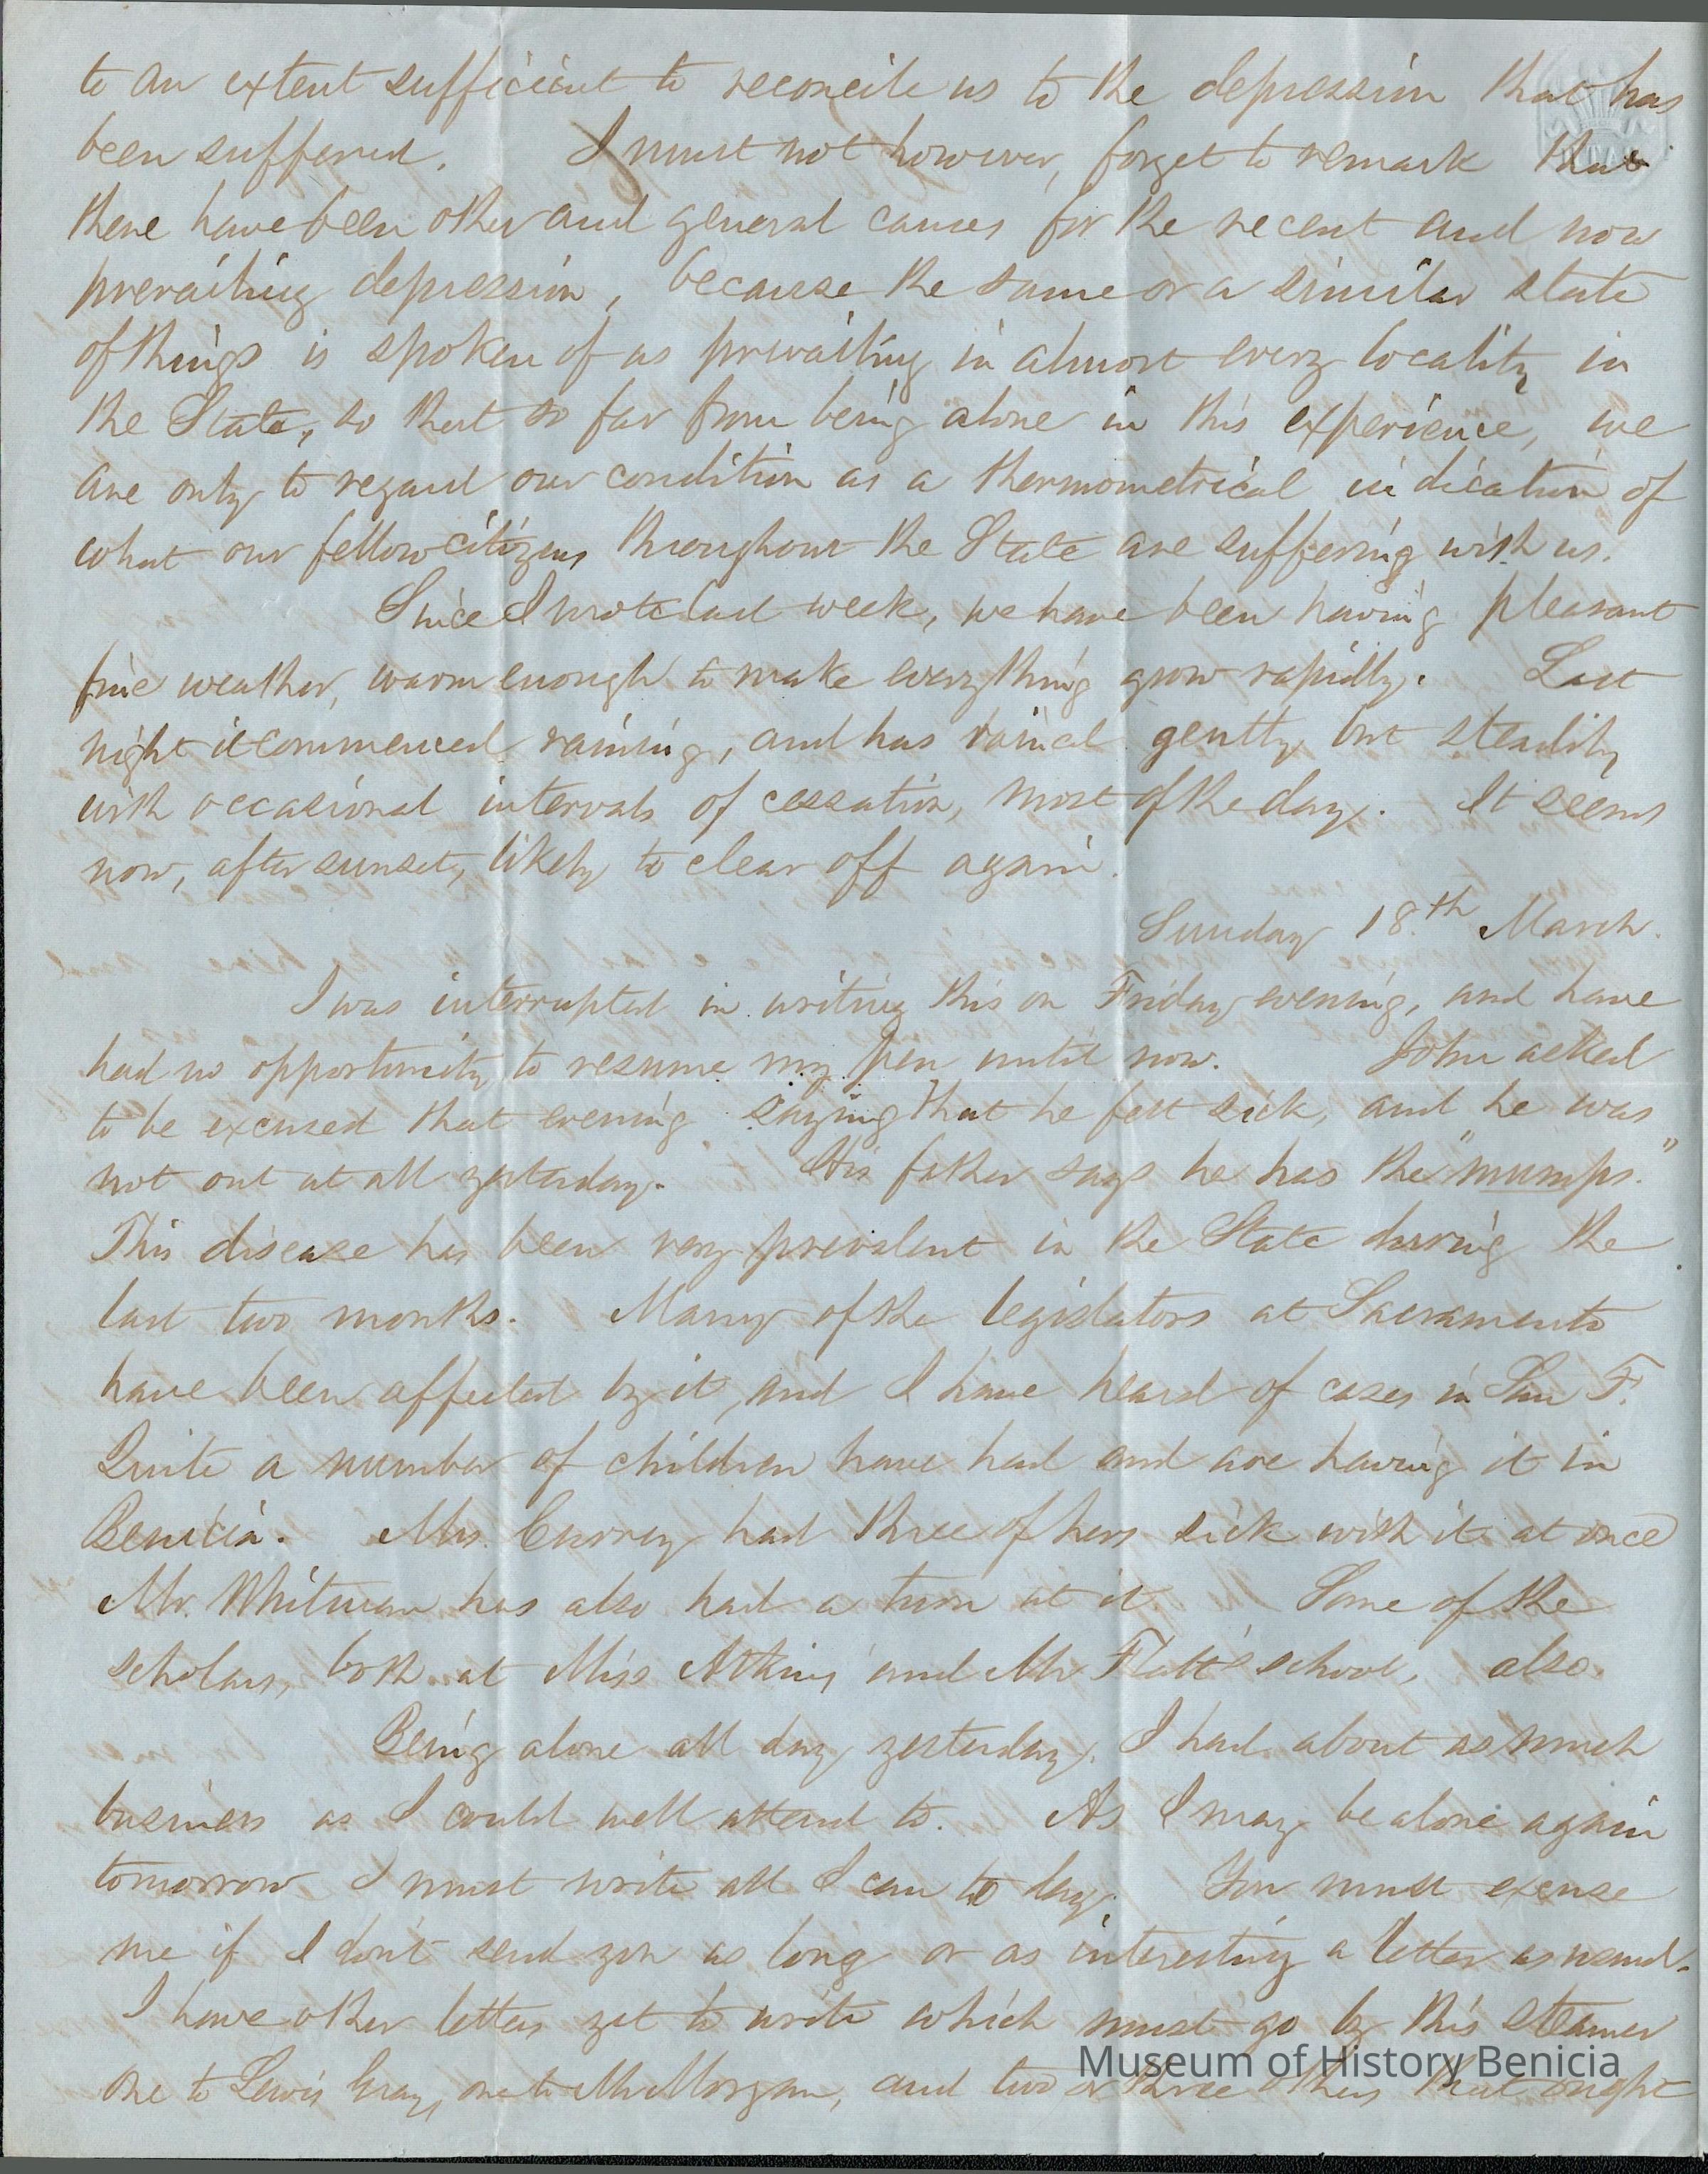 to an extent sufficient to reconcile us to the depression that has
been suffered. I must not however, forget to remark that
there have been other and general causes for the recent and now
prevailing depression, because the same or a similar state
of things is spoken of as prevailing in almost every locality in
the State, so that so far from being alone in this experience, we
are only to regard our condition as a thermometrical indication of
what our fellow citizens throughout the State are suffering with us.
Since I wrote last week, we have been having pleasant
fine weather, warm enough to make everything grow rapidly. Last
night it commenced raining, and has rained gently but steadily
with occasional intervals of cessation, most of the day. It seems
now, after sunset, likely to clear off again.
Sunday 18th March.
I was interrupted in writing this on Friday evening, and have
had no opportunity to resume my pen until now. John asked
to be excused that evening saying that he felt sick, and he was
not out at all yesterday. His father says he has the "mumps."
This disease has been very prevalent in the State during the
last two months. Many of the legislators at Sacramento
have been affected by it, and I have heard of cases in San F.
Quite a number of children have had and are having it in
Benicia. Mrs. Currey had three of hers sick with it at once
Mr. Whitman has also had a turn at it. Some of the
scholars, both at Miss Atkins' and Mr Flatt's school, also.
Being alone all day yesterday, I had about as much
business as I could well attend to. As I may be alone again
tomorrow I must write all I can to day. You must excuse
me if I don't send you as long or as interesting a letter as usual.
I have other letters yet to write which must go by this steamer
one to Lewis Gray, one to Mr Morgan, and two or three others that ought
Museum of History Benicia